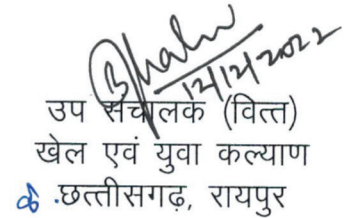 12/12/2022
उप संचालक (वित्त)
खेल एवं युवा कल्याण
छत्तीसगढ़, रायपुर